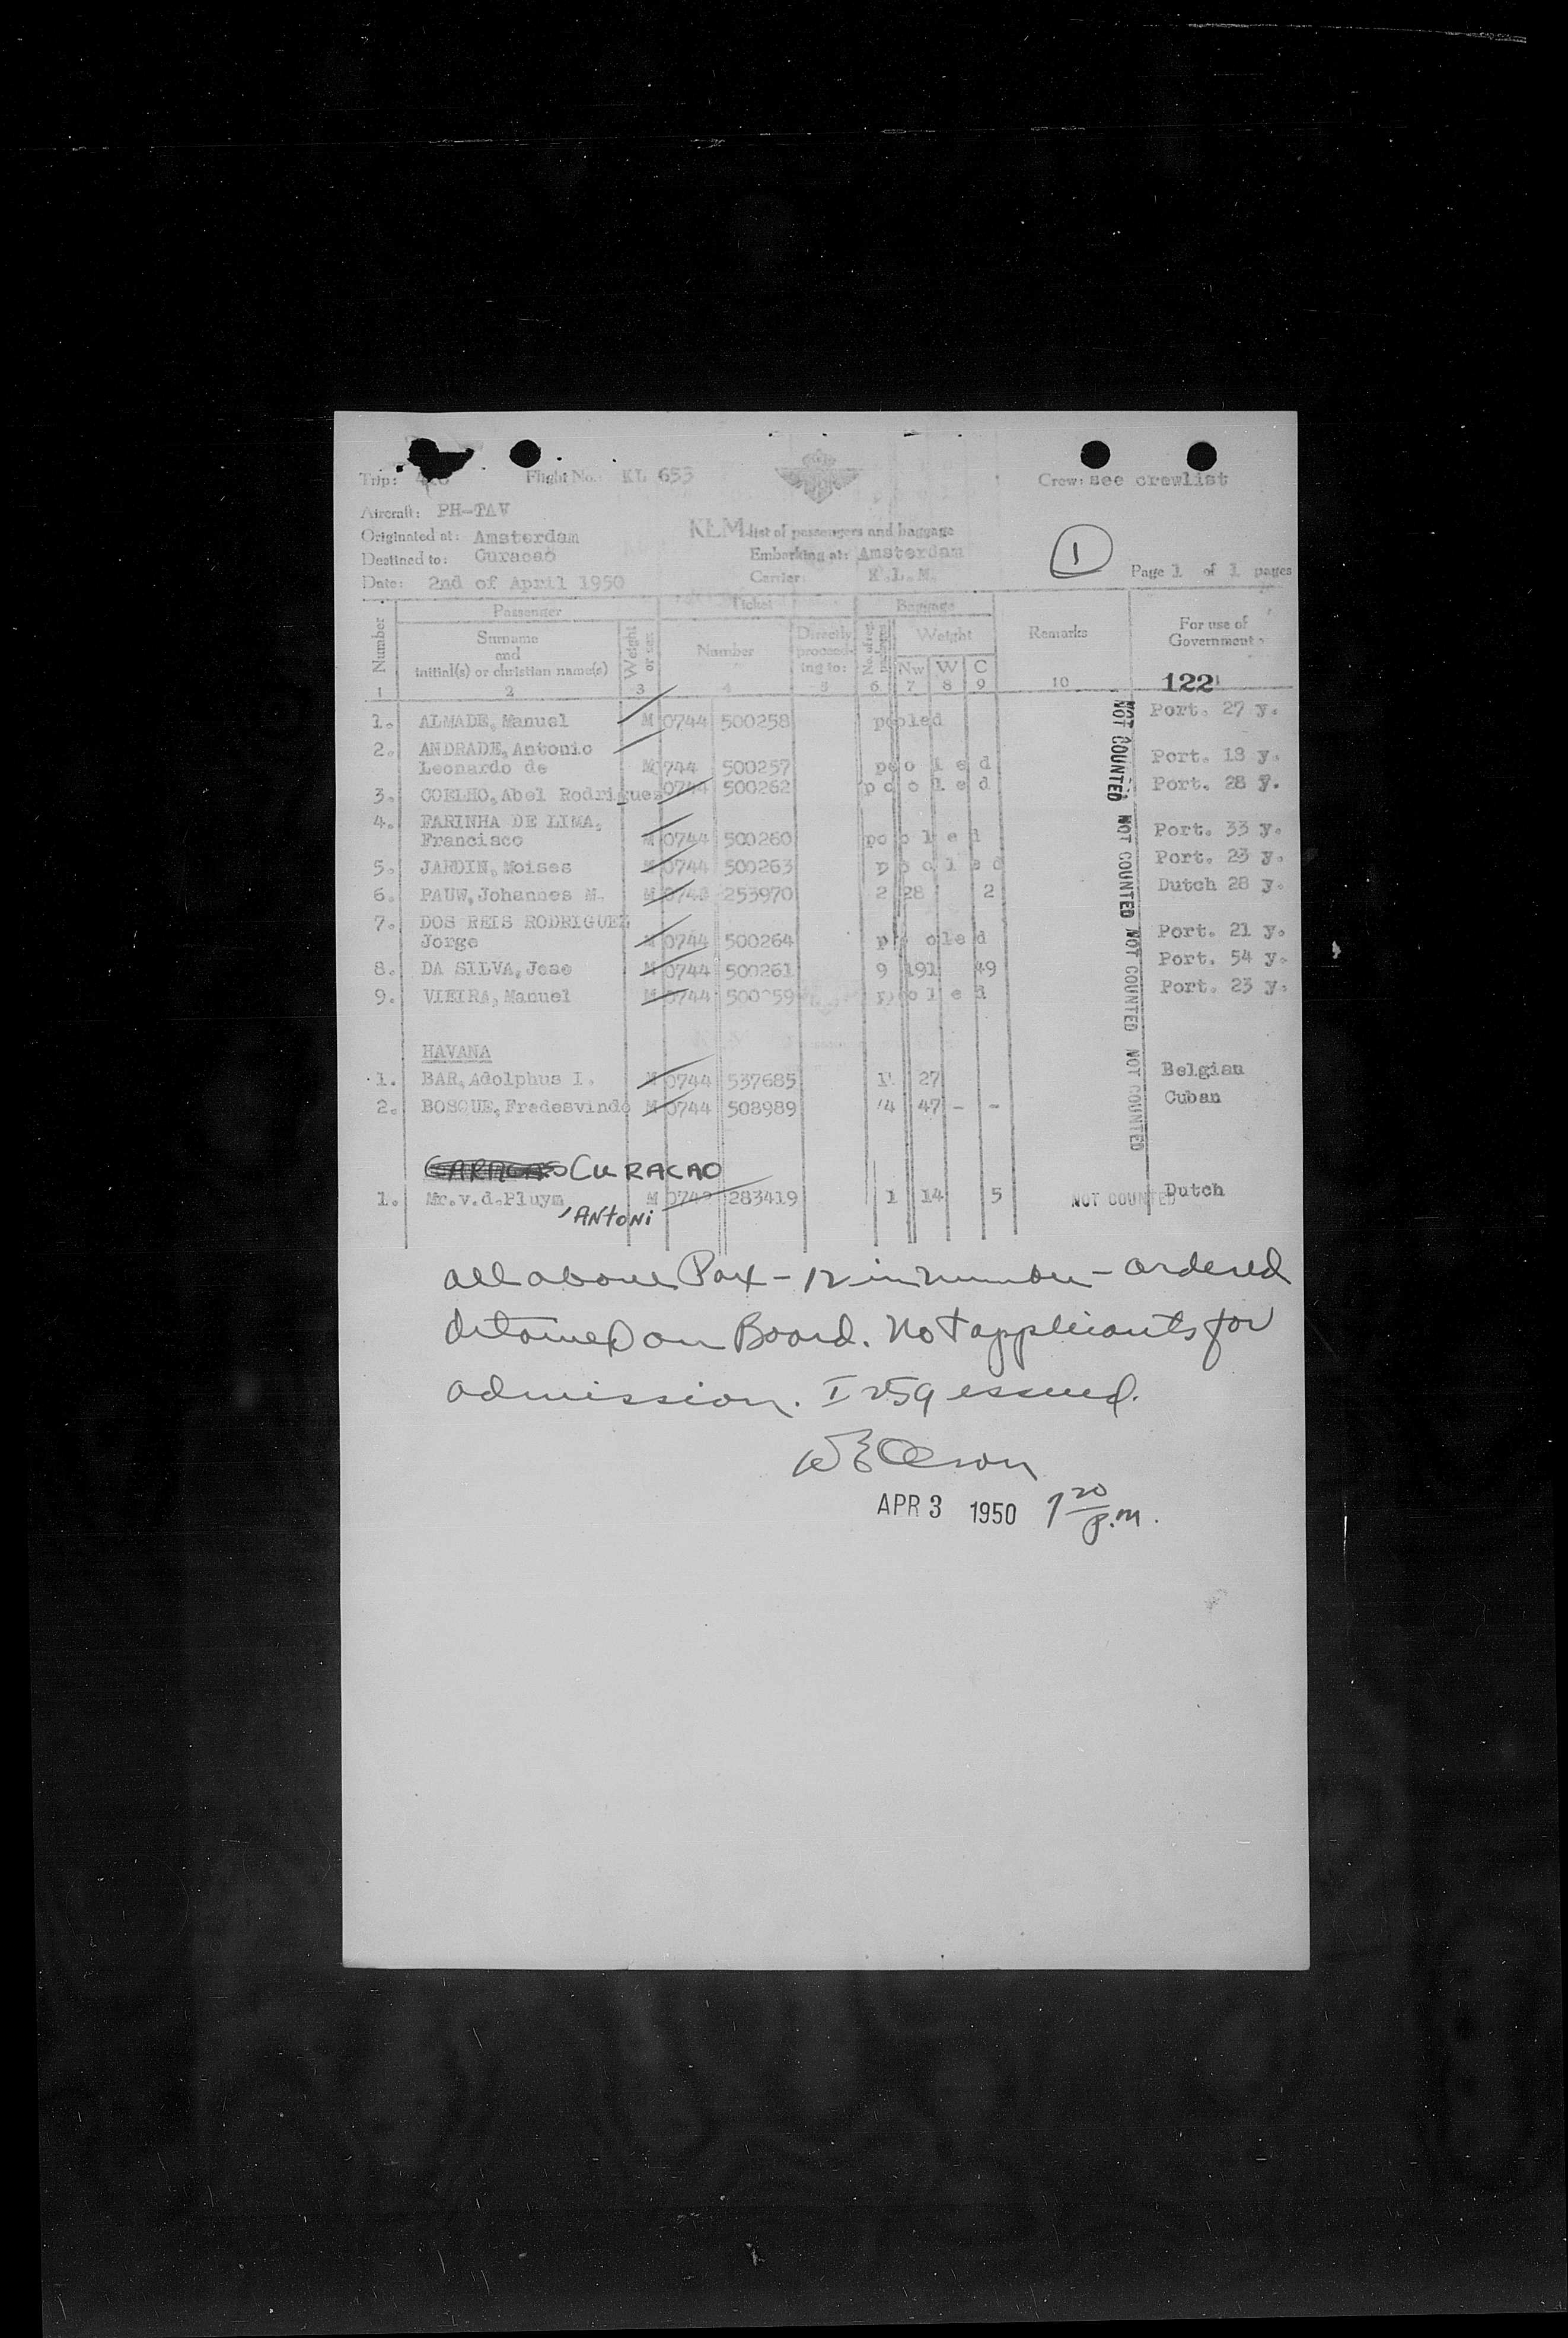 Trip: Flight No.: KL 653 Crew: see crewlist
Aircraft: PH-TAV
Originated at: Amsterdam KLM list of passengers and baggage
Destined to: Curacao Embarking at: Amsterdam 1
Date: 2nd of April 1950 Carrier: K.L.M. Page 1 of 1 pages
Number Passenger Ticket Baggage Remarks For use of Government
Surname and initial(s) or christian name(s) Weight or sex Number Directly proceeding to: Weight
Nw W C
1 2 3 4 5 6 7 8 9 10 122
1. ALMADE, Manuel M 0744 500258 pooled Port. 27 y.
2. ANDRADE, Antonio
Leonardo de M 0744 500257 pooled Port. 18 y.
3. COELHO, Abel Rodrigues 0744 500262 pooled Port. 28 y.
4. FARINHA DE LIMA,
Francisco M 0744 500260 pooled Port. 33 y.
5. JARDIN, Moises M 0744 500263 pooled Port. 23 y.
6. PAUW, Johannes M. M 253970 2 28 2 Dutch 28 y.
7. DOS REIS RODRIGUEZ
Jorge M 0744 500264 pooled Port. 21 y.
8. DA SILVA, Jose M 0744 500261 9 191 49 Port. 54 y.
9. VIEIRA, Manuel M 0744 500259 pooled Port. 23 y.
NOT COUNTED NOT COUNTED NOT COUNTED NOT COUNTED
HAVANA
1. BAR, Adolphus I. M 0744 537685 1 27 Belgian
2. BOSQUE, Fredesvindo M 0744 508989 4 47 - - Cuban
CARACAS CURACAO
1. Mr.v.d.Pluym M 283419 1 14 5 NOT COUNTED Dutch
, ANTONI
all above Pax - 12 in number - ordered
detained on Board. Not applicants for
admission. I 259 issued.
W E Olson
APR 3 1950 1 20 p.m.